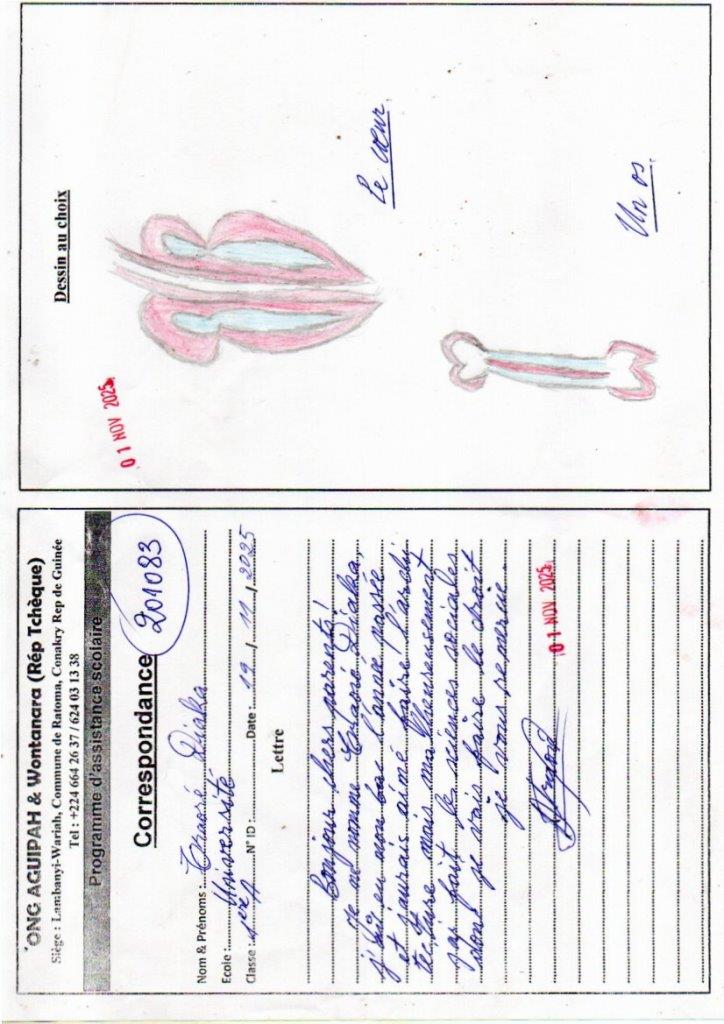 ONG AGUIPAH & Wontanara (Rép Tchèque)
Siège : Lambanyi-Wariah, Commune de Ratoma, Conakry Rep de Guinée
Tel : +224 664 26 37 / 624 03 13 38
Programme d'assistance scolaire
Correspondance
201083
Nom & Prénoms : Traoré Diaka
Ecole : Université
Classe : 1ère A N° ID : Date : 19 / 11 / 2025
Lettre
Bonjour chers parents!
Je me nomme Traoré Diaka,
j'ai eu mon bac l'année passée
et j'aurais aimé faire l'archi
tecture mais malheureusement
j'ai fait les sciences sociales
donc je vais faire le droit
je vous remercie
01 NOV 2025
Dessin au choix
01 NOV 2025
Le cœur
Un os.